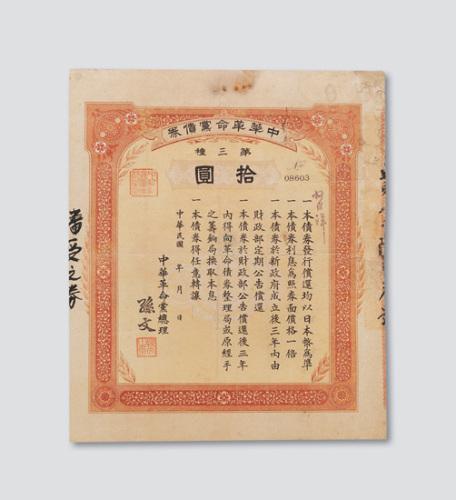 中華革命黨債券
第三種
拾圓
08603
一本債券發行償還均以日本幣為準
一本債券利息為照券面價格一倍
一本債券於新政府成立後三年內由
財政部定期公告償還
一本債券於財政部公告償還後三年
內得向革命債券整理局或原經手
之籌餉局換取本息
一本債券得任意轉讓
中華民國 年 月 日
中華革命黨總理
孫文